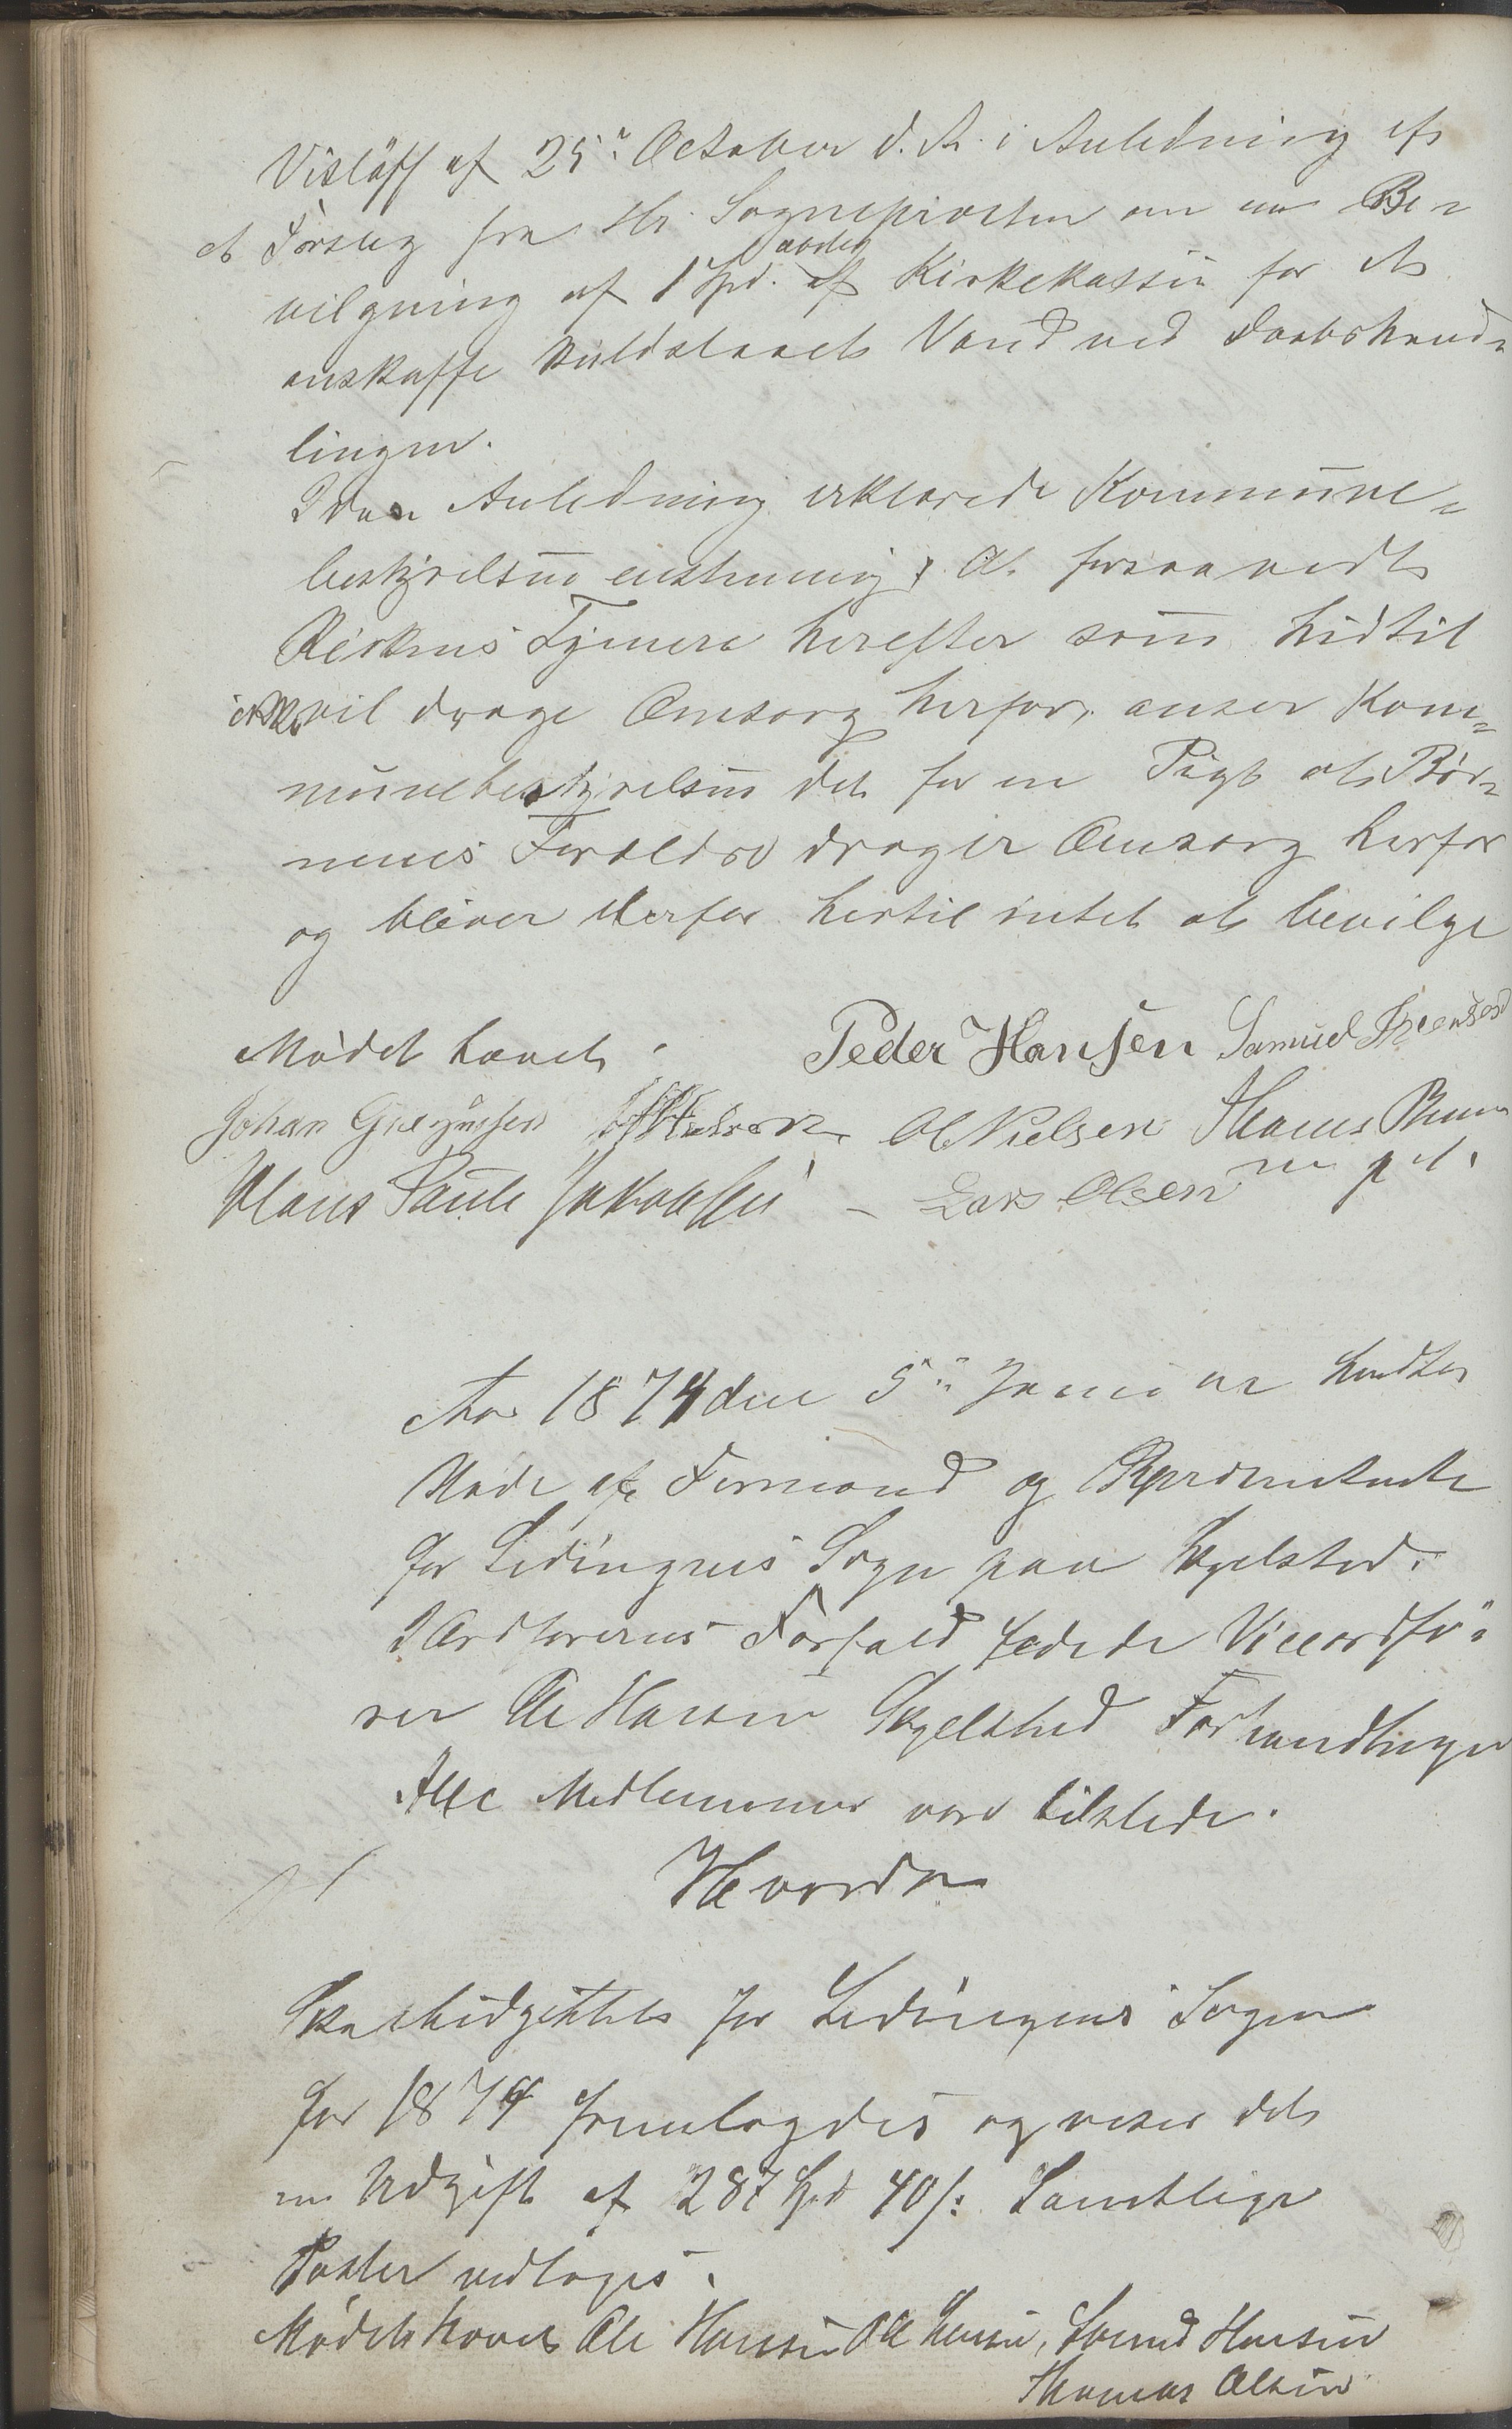 af 25de October d. A. i Anledning af
et Forslag fra Hr. Sognepræsten om en Be-
vilgning af 1 Spd. af Kirkekassen for at
aarlig
anskaffe kuldslaaet Vand ved Daabshand-
lingen.
I den Anledning erklærede Kommune-
bestyrelsen enstemmig, at forsaavidt
Kirkens Tjenere herefter som hidtil
ikke vil drage Omsorg herfor, anser Kom-
munebestyrelsen det for en Pligt at Bør-
nenes Forældre drager Omsorg herfor
og bliver derfor hertil intet at bevilge
Mødet hævet. Peder Hansen Samuel
Johan Ol Nielsen Thomas
Hans Paule Jakobsen - Lars Olsen m p P.
Aar 1874 den 5te Januar holdtes
Møde af Formænd og Repræsentanter
for Lødingens Sogn paa
I Ordførerens Forfald ledede Viceordfø-
rer Ole Hansen Forhandlingen
Alle Medlemmer vare tilstede.
Hvorda
Skolebudgettet for Lødingens Sogn
for 1874 fremlagdes og viser det
en Udgift af 287 Spd 40 s: Samtlige
Poster vedtoges.
Mødet hævet Ole Hansen Ole Hansen,
Thomas Olsen